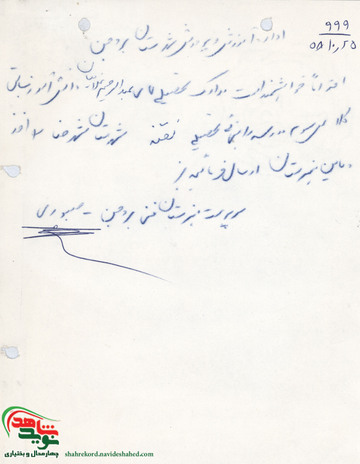 ۹۹۹
۵۸/۱۰/۲۵
اداره آموزش و پرورش شهرستان بروجن
احتراماً خواهشمند است مدارک تحصیلی آقای عبدالرحیم دانش آموز سابق
کلاس سوم مدرسه راهنمائی تحصیلی شهرستان شهرضا
باین هنرستان ارسال فرمائید
سرپرست هنرستان فنی بروجن - صبوری
نوید شاهد
چهارمحال و بختیاری
shahrekord.navideshahed.com